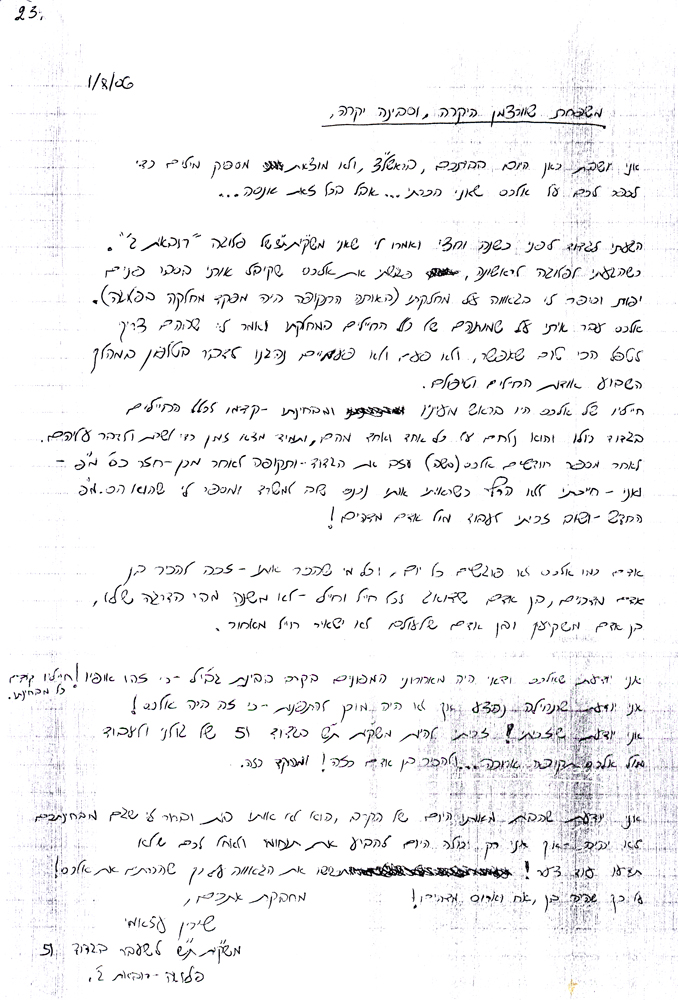 23.
1/8/06
משפחת שוורצמן היקרה, וסבינה יקרה,
אני יושבת כאן היום בראשל"צ, ולא מוצאת מספיק מילים כדי
לספר לכם על אלכס שאני הכרתי... אבל בכל זאת אנסה...
הגעתי לגדוד לפני כשנה וחצי ואמרו לי שאני משקית ת"ש של פלוגה "רובאית ג'".
כשהגעתי לפלוגה לראשונה, פגשתי את אלכס שקיבל אותי בסבר פנים
יפות וסיפר לי בגאווה על מחלקתו (באותה תקופה היה מפקד מחלקה בפלוגה).
אלכס עבר איתי על שמותיהם של כל החיילים במחלקתו ואמר לי שבהם צריך
לטפל הכי טוב שאפשר, ולא פעם ולא פעמיים נהגנו לדבר בטלפון במהלך
השבוע אודות החיילים וטיפולם.
חייליו של אלכס היו בראש מעיניו ומבחינתו - קדמו לכלל החיילים
בגדוד כולו והוא נלחם על כל אחד ואחד מהם, ותמיד מצא זמן כדי לשבת ולדבר עליהם.
לאחר מספר חודשים אלכס עזב את הגדוד - ותקופה לאחר מכן - חזר כס' מ"פ -
ואני - חייכתי ללא הרף כשראיתי אותו נכנס שוב למשרד ומספר לי שהוא הס. מ"פ
החדש - ושוב זכיתי לעבוד מול אדם מדהים!
אדם כמו אלכס לא פוגשים כל יום, וכל מי שהכיר אותו - זכה להכיר בן
אדם מדהים, בן אדם שדואג לכל חייל וחייל - לא משנה מהי הדרגה שלו,
בן אדם משקיען ובן אדם שלעולם לא ישאיר חייל מאחור.
אני יודעת שאלכס ודאי היה מאחרוני המפונים בקרב בבינת ג'בייל - כי זהו אופיו! חייליו קודמים
לכל מבחינתו.
אני יודעת שבתחילה נפצע אך לא היה מוכן להתפנות - כי זה היה אלכס!
אני יודעת שזכיתי! זכיתי להיות משקית ת"ש בגדוד 51 של גולני ולעבוד
מול אלכס תקופה ארוכה... ולהכיר בן אדם כזה! ומפקד כזה.
אני יודעת שהכאב מאותו היום של הקרב, הוא לא אותו כאב
לא יהיה - אך אני רק יכולה היום להביע את תנחומי ולאחל לכם שלא
תדעו עוד צער! את הגאווה על כך שהכרתם את אלכס!
על כך שהיה בן, אח וארוס מדהים!
מחבקת אתכם,
שירין
משקית ת"ש לשעבר בגדוד 51
פלוגה - רובאית ג'.